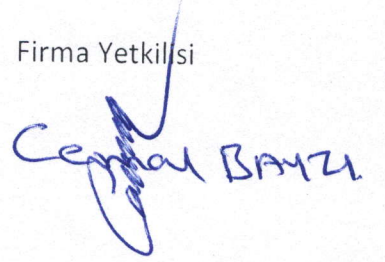 Firma Yetkilisi
Cemal BAYZI